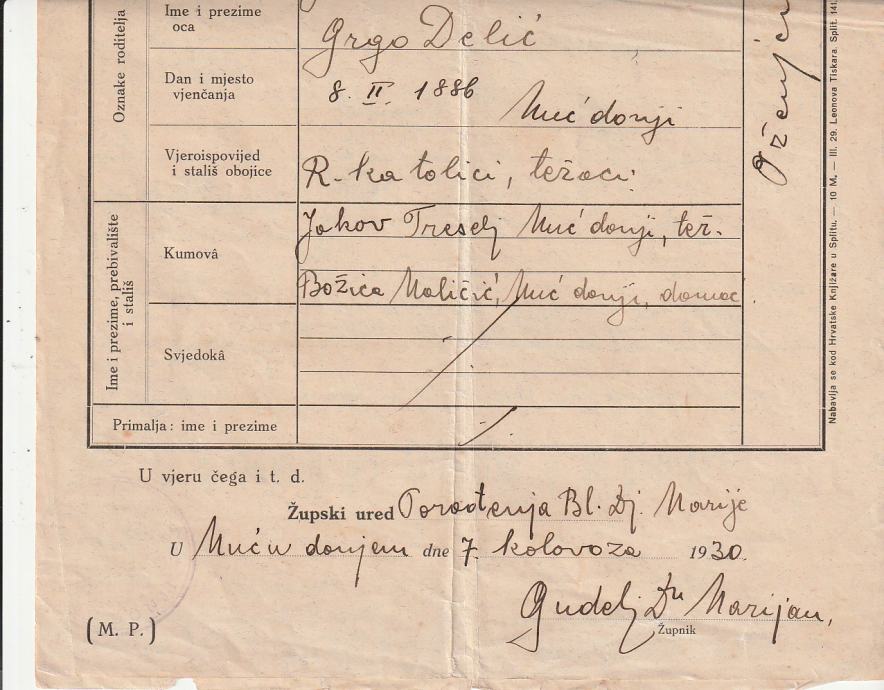 Oznake roditelja
Ime i prezime
oca
Grgo Delić
Dan i mjesto
vjenčanja
8. II. 1886
Muć donji
Vjeroispovijed
i stališ obojice
R. katolici, težaci
Ime i prezime, prebivalište
i stališ
Kumovâ
Jakov Treselj Muć donji, tež.
Božica Maličić, Muć donji, domać
Svjedokâ
Primalja: ime i prezime
Nabavlja se kod Hrvatske Knjižare u Splitu. — 10 M. — III. 29. Leonova Tiskara. Split. 141
U vjeru čega i t. d.
Župski ured Porođenja Bl. Dj. Marije
U Muću donjem dne 7. kolovoza 1930.
Gudelj Dn Marijan,
Župnik
(M. P.)